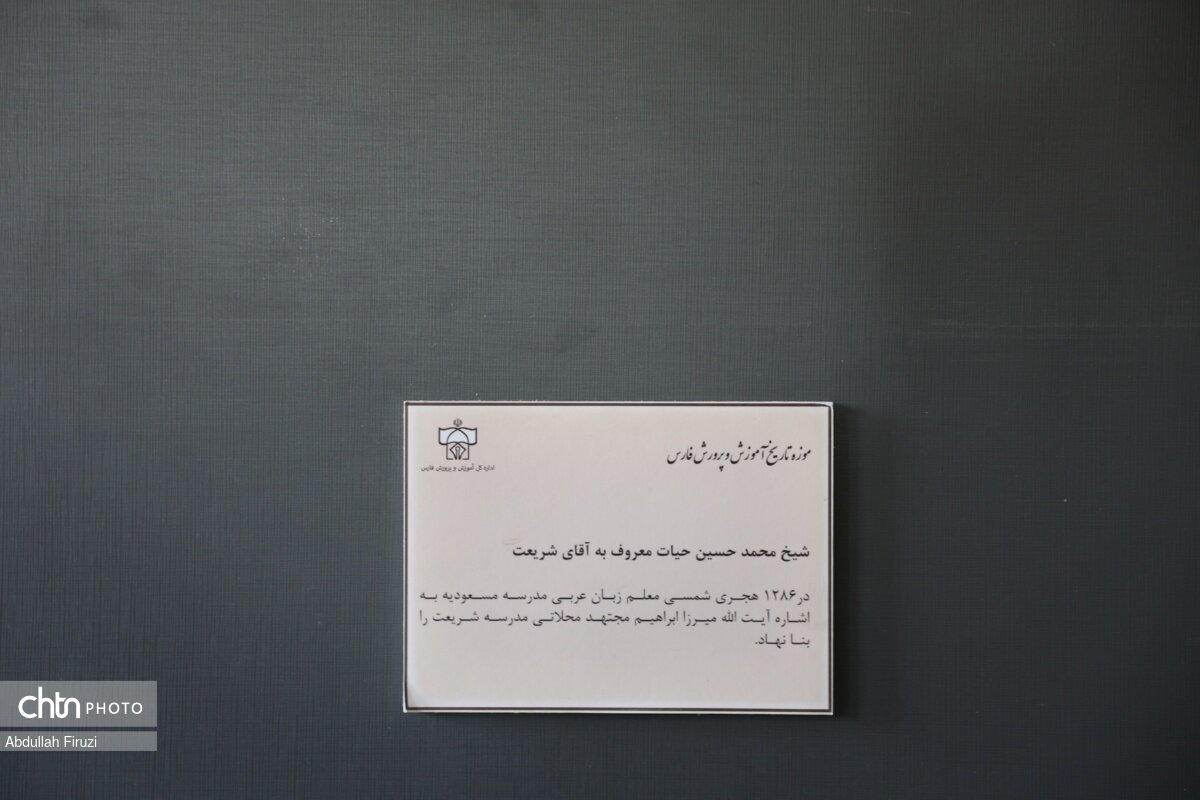 موزه تاریخ آموزش و پرورش فارس
اداره کل آموزش و پرورش فارس
شیخ محمد حسین حیات معروف به آقای شریعت
در۱۲۸۶ هجری شمسی معلم زبان عربی مدرسه مسعودیه به
اشاره آیت الله میرزا ابراهیم مجتهد محلاتی مدرسه شریعت را
بنا نهاد.
chtn PHOTO
Abdullah Firuzi